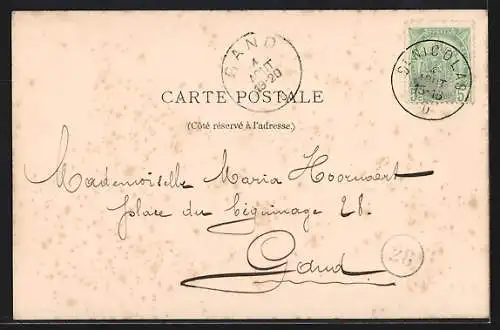 GAND
4
AOUT
19-20
ST NICOLAS
4
AOUT
5
CARTE POSTALE
(Côté réservé à l'adresse.)
Mademoiselle Maria Hoorwaert
place du Béguinage 28.
Gand
28